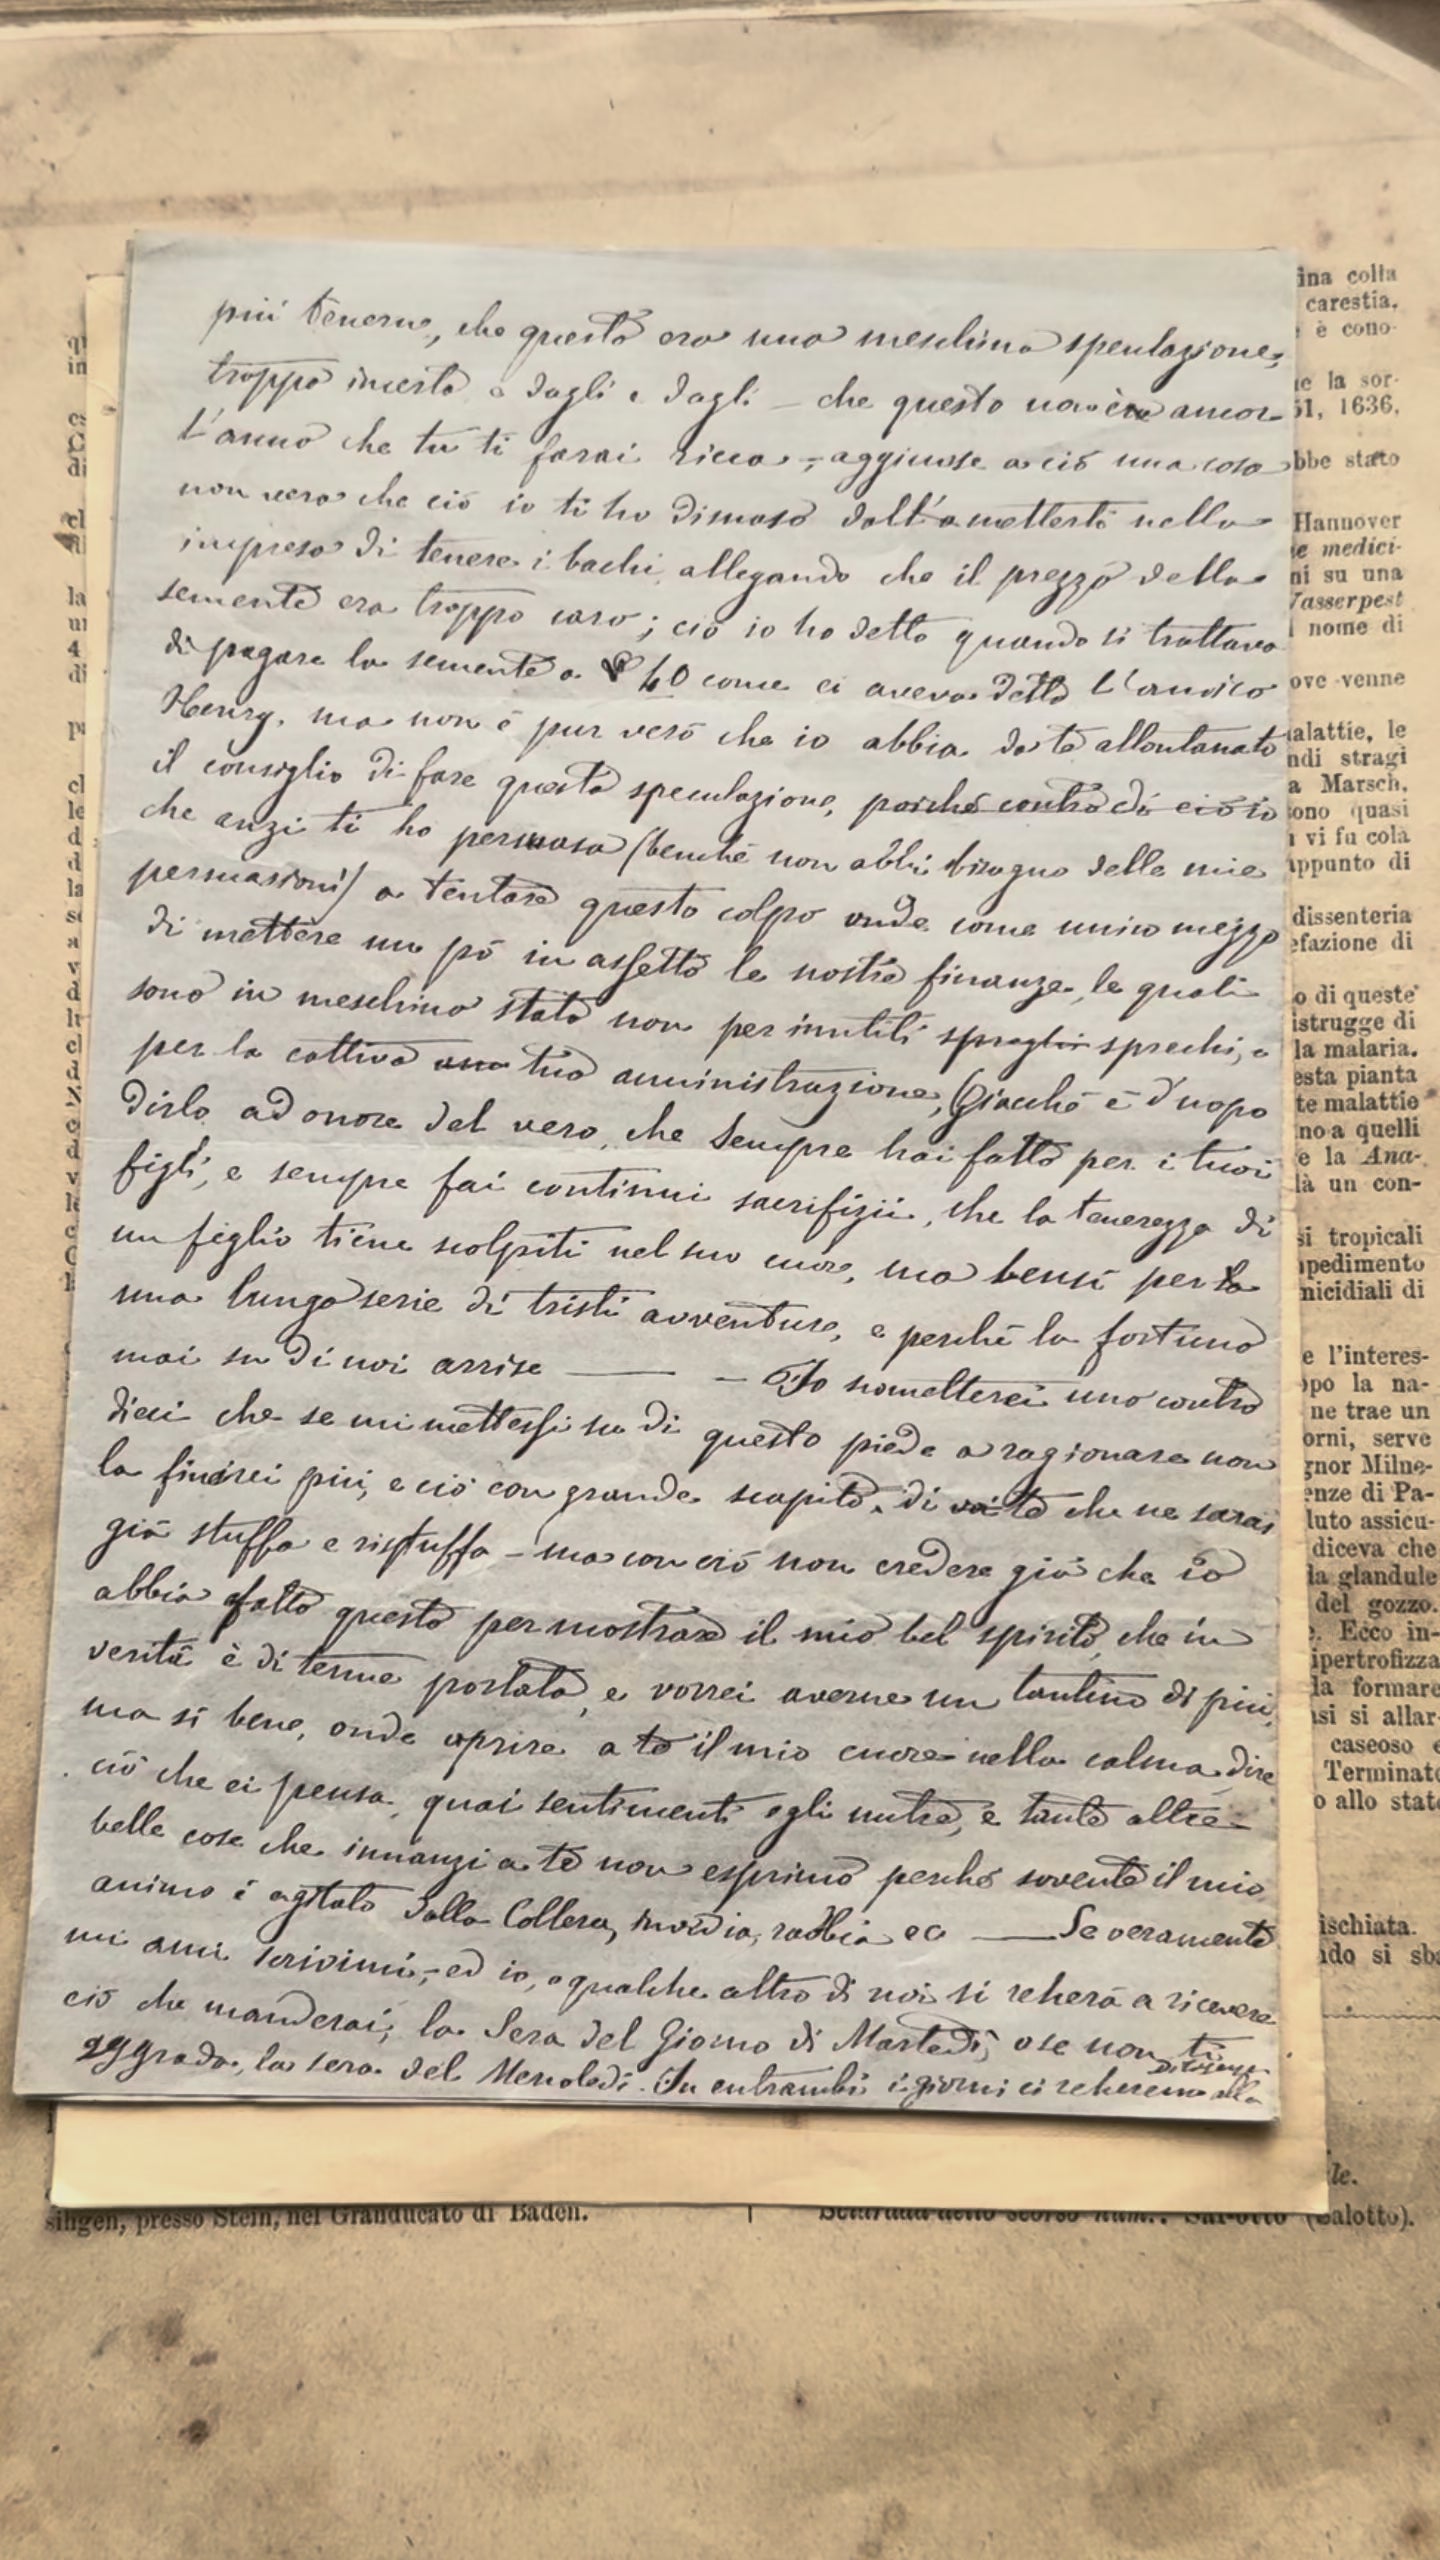 più tenerne, che questa era una meschina speculazione,
troppo incerta e dagli e dagli – che questo non era ancor
l'anno che tu ti farai ricca –; aggiunse a ciò una cosa
non vera che ciò io ti ho dimaso dall'ametterti nella
impresa di tenere i bachi, allegando che il prezzo della
semente era troppo caro; ciò io ho detto quando si trattava
di pagare la semente a 40 come ci aveva detto l'amico
Henry. ma non è pur vero che io abbia da te allontanato
il consiglio di fare questa speculazione, poiché contro di ciò io
che anzi ti ho persuasa (benché non abbi bisogno delle mie
persuasioni) a tentare questo colpo onde come unico mezzo
di mettere un pò in assetto le nostre finanze, le quali
sono in meschino stato non per inutili sprechi, o
per la cattiva tua amministrazione, (Giacchè è d'uopo
dirlo ad onore del vero, che sempre hai fatto per i tuoi
figli, e sempre fai continui sacrifizii, che la tenerezza di
un figlio tiene scolpiti nel suo cuore, ma bensì per la
una lunga serie di tristi avventure, e perchè la fortuna
mai su di noi arrise ——— – Io scometterei uno contro
dieci che se mi mettessi su di questo piede a ragionare non
la finirei più, e ciò con grande scapito di te che ne sarai
già stuffa e ristuffa – ma con ciò non credere già che io
abbia fatto questo per mostrare il mio bel spirito, che in
verità è di tenue portata, e vorrei averne un tantino di più,
ma sì bene, onde aprire a te il mio cuore nella calma, dire
ciò che ei pensa, quai sentimenti egli nutre, e tante altre
belle cose che innanzi a te non esprimo perchè sovente il mio
animo è agitato dalla Collera, invidia, rabbia ec ——— Se veramente
mi ami scrivimi, – ed io, o qualche altro di noi si recherà a ricevere
ciò che manderai; la Sera del Giorno di Martedì, o se non ti
aggrada, la sera del Mercoledì. In entrambi i giorni ci recheremo alla
ina colla
carestia.
è cono-
ne la sor-
51, 1636,
bbe stato
Hannover
e medici-
ni su una
Wasserpest
nome di
ove venne
alattie, le
ndi stragi
a Marsch,
sono quasi
vi fu colà
appunto di
dissenteria
efazione di
o di queste
istrugge di
la malaria.
esta pianta
te malattie
no a quelli
e la Ana-
là un con-
si tropicali
pedimento
nicidiali di
e l'interes-
opo la na-
ne trae un
orni, serve
gnor Milne-
enze di Pa-
luto assicu-
diceva che
la glandule
del gozzo.
Ecco in-
ipertrofizza
la formare
si si allar-
caseoso e
Terminato
o allo stato
ischiata.
ndo si sba
le.
singen, presso Stein, nel Granducato di Baden.
Sciarada dello scorso num.: Sal-otto (Salotto).